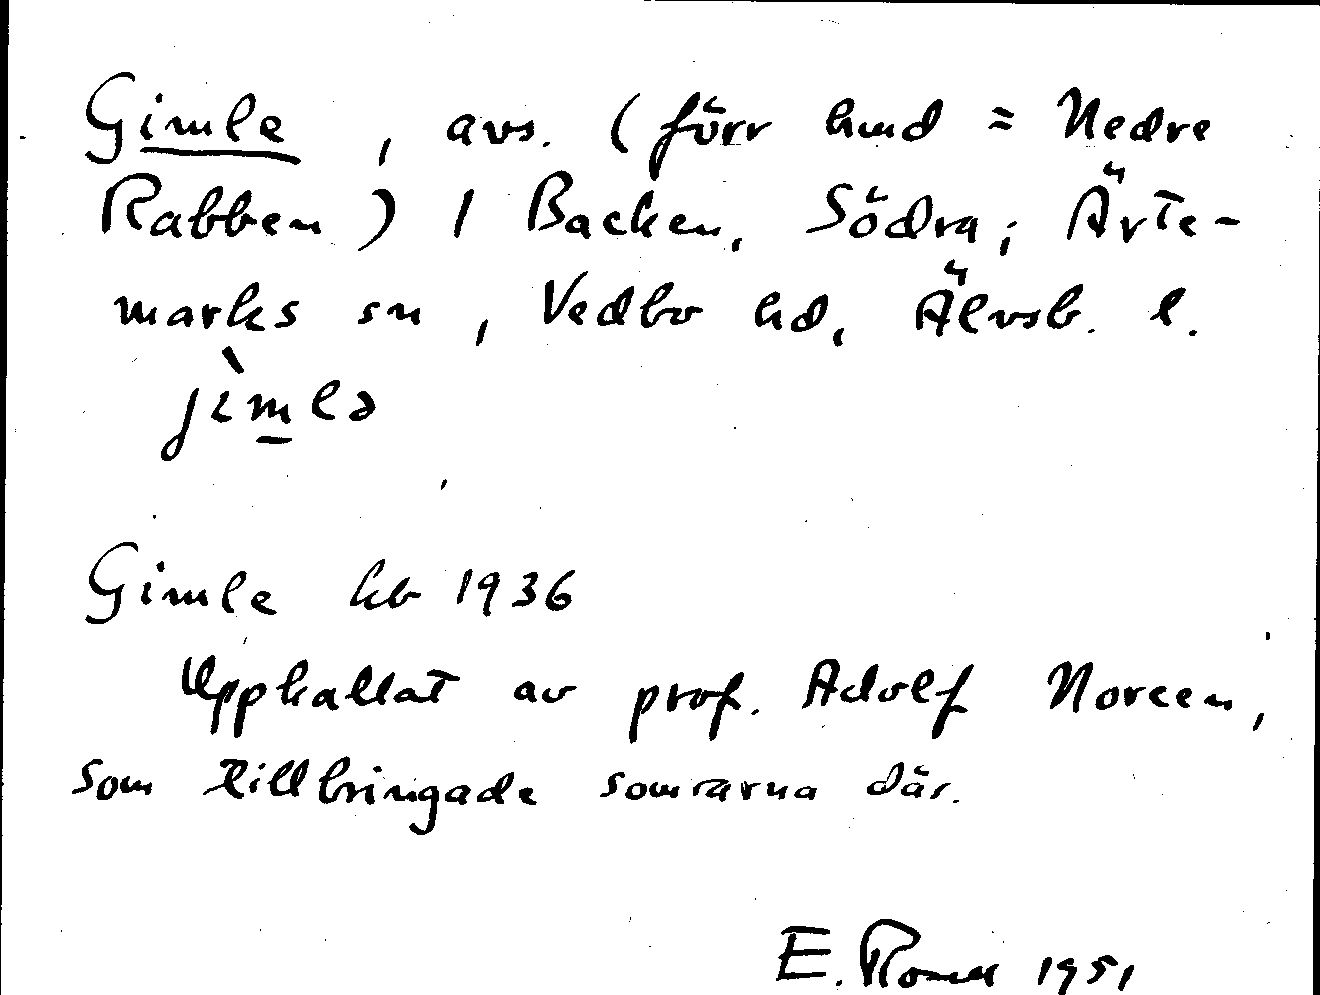 Gimle, avs. (förr hmd = Nedre
Rabben) / Backen, Södra; Ärte-
marks sn, Vedbo hd, Älvsb. l.
jìmlə
Gimle kb 1936
Uppkallat av prof. Adolf Noreen,
som tillbringade somrarna där.
E. 1951